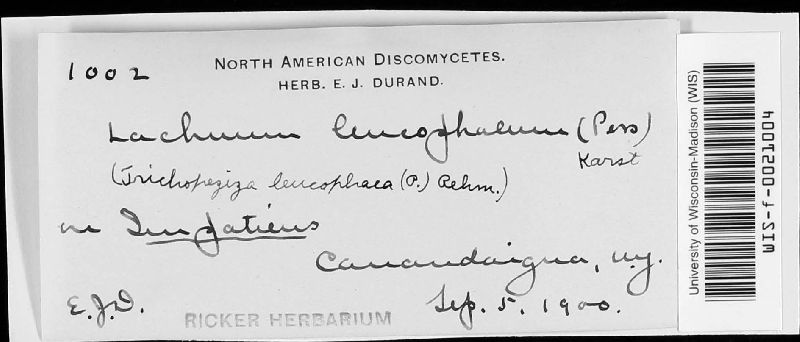 1002
NORTH AMERICAN DISCOMYCETES.
HERB. E. J. DURAND.
Lachnum leucophaeum (Pers)
Karst
(Trichopeziza leucophaea (P.) Rehm.)
on Impatiens
Canandaigua, N.Y.
E.J.D.
Sep. 5. 1900.
RICKER HERBARIUM
University of Wisconsin-Madison (WIS)
WIS-f-0021004